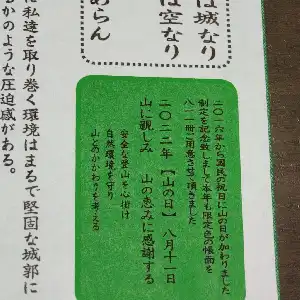 は城なり
は空なり
あらん
に私達を取り巻く環境はまるで堅固な城郭に
るかのような圧迫感がある。
二〇一六年から国民の祝日に山の日が加わりました
制定を記念致しまして本年も限定色の帳面を
八一一冊ご用意させて頂きました
二〇二二年【山の日】八月十一日
山に親しみ 山の恵みに感謝する
安全な登山を心掛け
自然環境を守り
山とのかかわりを考える